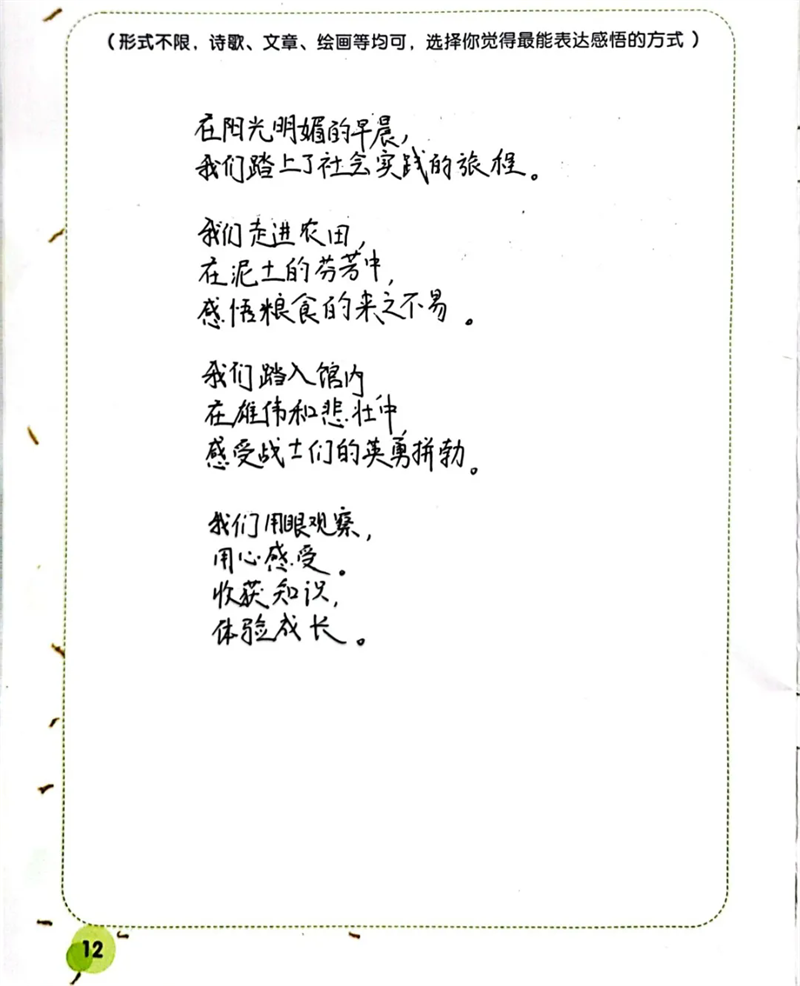 （形式不限，诗歌、文章、绘画等均可，选择你觉得最能表达感悟的方式）
在阳光明媚的早晨，
我们踏上了社会实践的旅程。
我们走进农田，
在泥土的芬芳中，
感悟粮食的来之不易。
我们踏入馆内，
在雄伟和悲壮中，
感受战士们的英勇拼勃。
我们用眼观察，
用心感受。
收获知识，
体验成长。
12